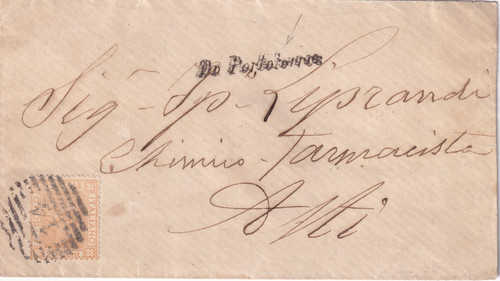 Da Portotorres
Sig. Sp. Liprandi
Chimico-Farmacista
Asti